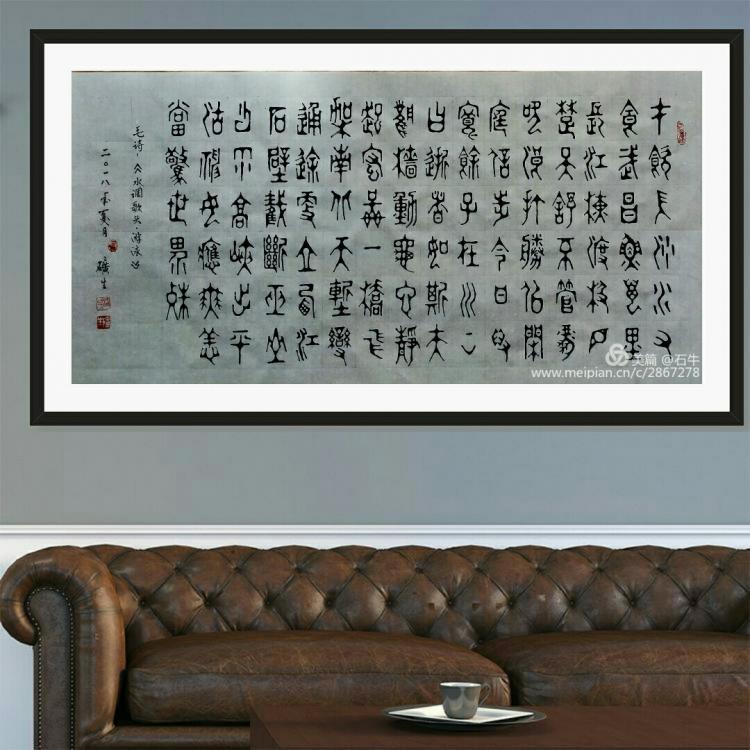 才飲長沙水又
食武昌魚萬里
長江橫渡極目
楚天舒不管風
吹浪打勝似閒
庭信步今日得
寬餘子在川上
曰逝者如斯夫
風檣動龜蛇靜
起宏圖一橋飛
架南北天塹變
通途更立西江
石壁截斷巫山
雲雨高峽出平
湖神女應無恙
當驚世界殊
毛诗水调歌头·游泳
二〇一八年夏月
美篇 @石牛
www.meipian.cn/c/2867278